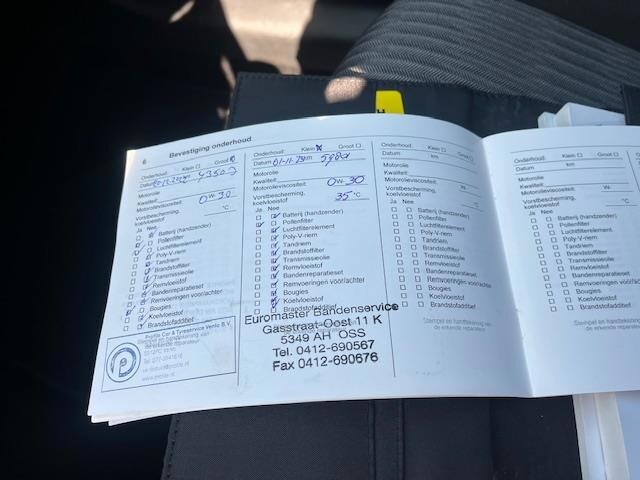 6 Bevestiging onderhoud
Onderhoud: Klein Groot
Datum km
Motorolie
Kwaliteit:
Motorolieviscositeit: 0W-30
Vorstbescherming, koelvloeistof °C
Ja Nee
Batterij (handzender)
Pollenfilter
Luchtfilterelement
Poly-V-riem
Tandriem
Brandstoffilter
Transmissieolie
Remvloeistof
Bandenreparatieset
Remvoeringen voor/achter
Bougies
Koelvloeistof
Brandstofadditief
Stempel en handtekening van
de erkende reparateur
Profile Car & Tyreservice Venlo B.V.
www.profile.nl
Onderhoud: Klein X Groot
Datum 01-11-23 km
Motorolie
Kwaliteit:
Motorolieviscositeit: 0W-30
Vorstbescherming, koelvloeistof 35 °C
Ja Nee
Batterij (handzender)
Pollenfilter
Luchtfilterelement
Poly-V-riem
Tandriem
Brandstoffilter
Transmissieolie
Remvloeistof
Bandenreparatieset
Remvoeringen voor/achter
Bougies
Koelvloeistof
Brandstofadditief
Euromaster Bandenservice
Gasstraat-Oost 11 K
5349 AH OSS
Tel. 0412-690567
Fax 0412-690676
Onderhoud: Klein Groot
Datum km
Motorolie
Kwaliteit:
Motorolieviscositeit: W-
Vorstbescherming,
koelvloeistof °C
Ja Nee
Batterij (handzender)
Pollenfilter
Luchtfilterelement
Poly-V-riem
Tandriem
Brandstoffilter
Transmissieolie
Remvloeistof
Bandenreparatieset
Remvoeringen voor/achter
Bougies
Koelvloeistof
Brandstofadditief
Stempel en handtekening van
de erkende reparateur
Onderhoud: Klein Groot
Datum km
Motorolie
Kwaliteit:
Motorolieviscositeit: W-
Vorstbescherming,
koelvloeistof °C
Ja Nee
Batterij (handzender)
Pollenfilter
Luchtfilterelement
Poly-V-riem
Tandriem
Brandstoffilter
Transmissieolie
Remvloeistof
Bandenreparatieset
Remvoeringen voor/achter
Bougies
Koelvloeistof
Brandstofadditief
Stempel en handtekening van
de erkende reparateur